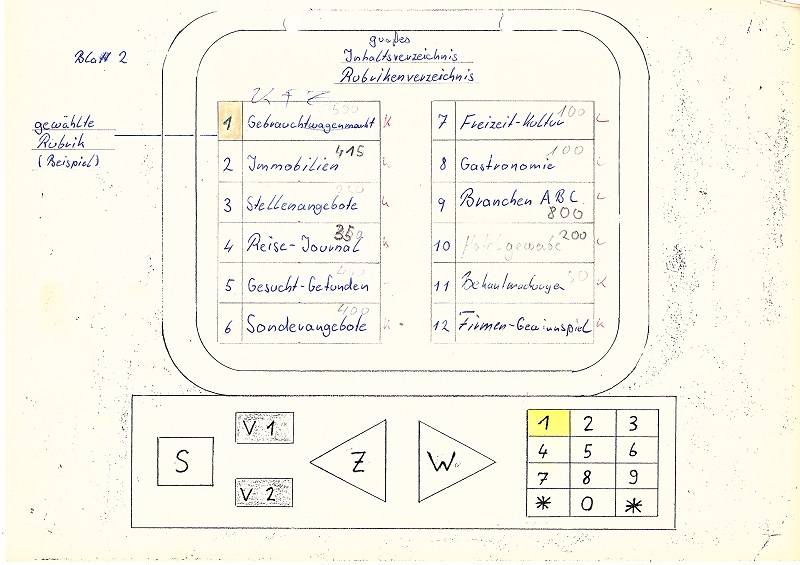 Blatt 2
großes
Inhaltsverzeichnis
Rubrikenverzeichnis
KFZ
gewählte
Rubrik
(Beispiel)
1 Gebrauchtwagenmarkt
2 Immobilien 415
3 Stellenangebote
4 Reise-Journal
5 Gesucht-Gefunden 400
6 Sonderangebote 400
7 Freizeit-Kultur 100
8 Gastronomie 100
9 Branchen ABC
800
10 Hotelgewerbe 200
11 Bekanntmachungen
12 Firmen-Gewinnspiel
S
V 1
V 2
Z
W
1 2 3
4 5 6
7 8 9
* 0 *